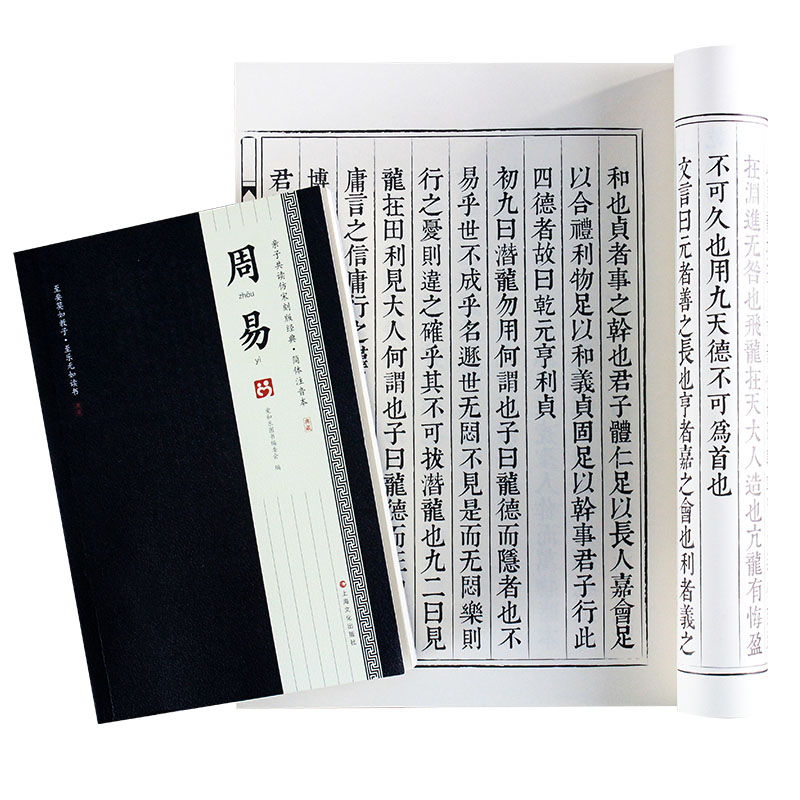 周
zhōu
易
yì
亲子共读仿宋刻版经典·简体注音本
典藏
爱和乐图书编委会 编
上海文化出版社
至要莫如教子·至乐无如读书
在淵進无咎也飛龍在天大人造也亢龍有悔盈
不可久也用九天德不可爲首也
文言曰元者善之長也亨者嘉之會也利者義之
和也貞者事之幹也君子體仁足以長人嘉會足
以合禮利物足以和義貞固足以幹事君子行此
四德者故曰乾元亨利貞
初九曰潛龍勿用何謂也子曰龍德而隱者也不
易乎世不成乎名遯世无悶不見是而无悶樂則
行之憂則違之確乎其不可拔潛龍也九二曰見
龍在田利見大人何謂也子曰龍德而正
庸言之信庸行之謹
博
君